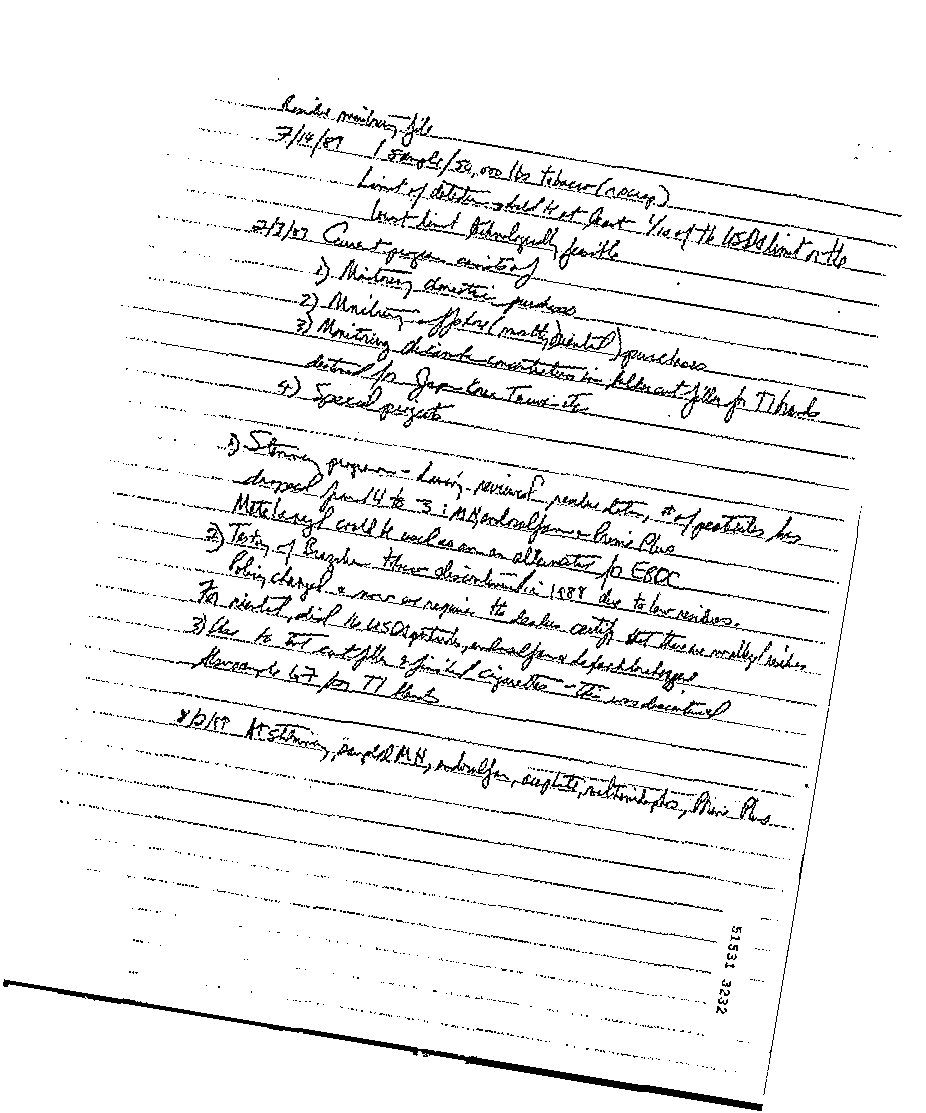 Residue monitoring file
7/14/87 1 sample/50,000 lbs tobacco
Limit of detection should be at least 1/10 of the USDA limit or the
lowest limit technologically feasible
2/3/87 Current program consists of
1) Monitoring domestic purchases
2) Monitoring offshore ( oriental) purchases
3) Monitoring dicamba concentration in filler for TI brands
destined for Japan Korea Taiwan etc
4) Special projects
1) Stemming program - having reviewed residue data, # of pesticides has
dropped from 14 to 3: MH, endosulfan & Prime Plus
Metalaxyl could be used as an alternative for EBDC
2) Testing of Brazilian discontinued in 1988 due to low residues.
Policy changed & now we require the dealers certify that there are residues
For oriental, did the USDA pesticides, endosulfan &
3) Use to test cut filler & finished cigarettes - this was discontinued
Now sample for TI blends
8/2/89 At stemming, sampled MH, endosulfan, acephate, methamidophos, Prime Plus
51531 3232